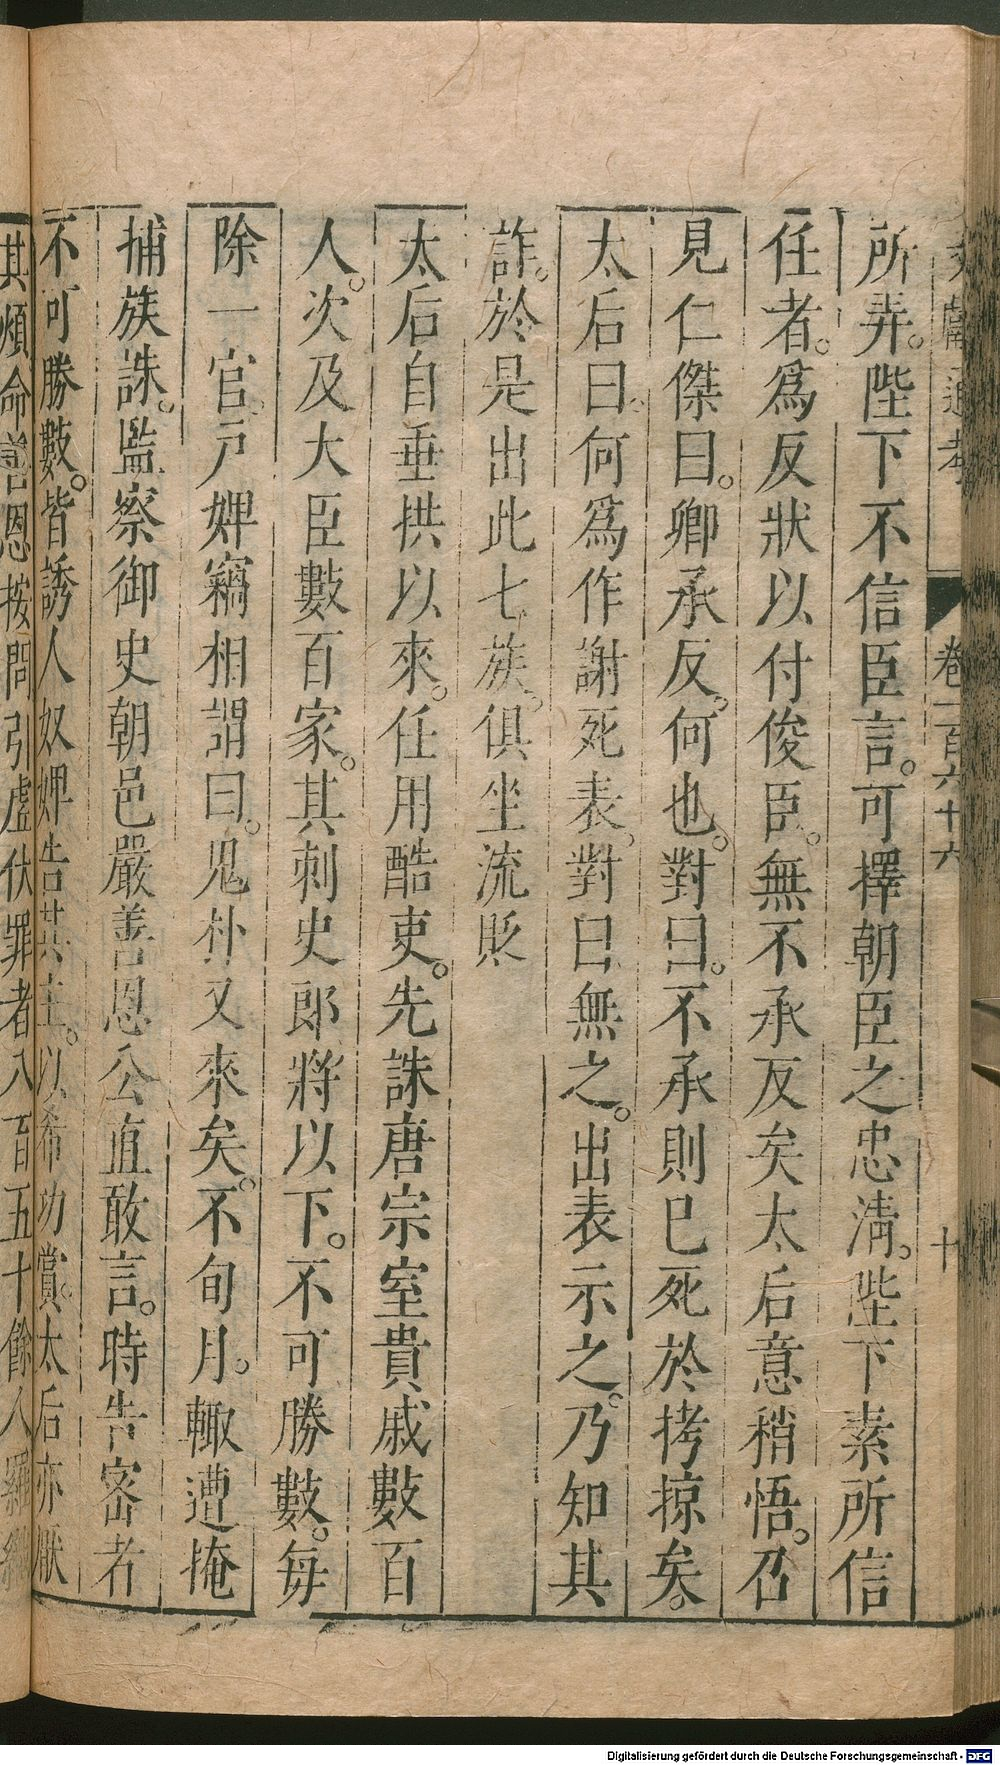 文獻通考 卷一百六十六 十
所弄。陛下不信臣言。可擇朝臣之忠淸。陛下素所信
任者。爲反狀以付俊臣。無不承反矣太后意稍悟。召
見仁傑曰。卿承反。何也。對曰。不承則已死於拷掠矣。
太后曰。何爲作謝死表。對曰無之。出表示之。乃知其
詐。於是出此七族。俱坐流貶
太后自垂拱以來。任用酷吏。先誅唐宗室貴戚數百
人。次及大臣數百家。其刺史郎將以下。不可勝數。每
除一官。戸婢竊相謂曰。鬼朴又來矣。不旬月。輙遭掩
捕族誅。監察御史朝邑嚴善思公直敢言。時告密者
不可勝數。皆誘人奴婢告其主。以希功賞。太后亦厭
其煩命善思按問引虛伏罪者八百五十餘人羅織
Digitalisierung gefördert durch die Deutsche Forschungsgemeinschaft - DFG